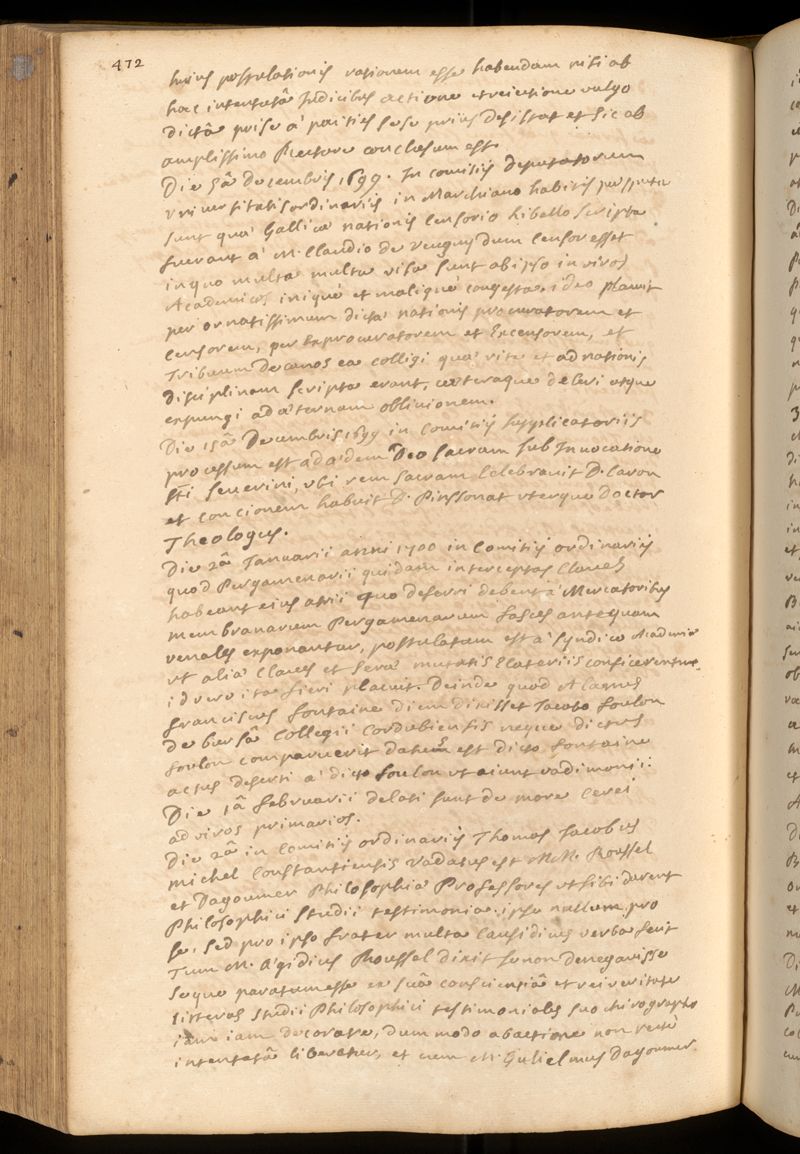 472
huius postulationis rationem esse habendam nisi ab
hac intentatâ Iudicibus actione et reiectione vulgo
dictâ prise à parties sese prius desistat et sic ab
amplissimo Rectore conclusum est.
Die 5â decembris 1699. In comitiis deputatorum
vniversitatis ordinariis in Marchiano habitis perspecta
sunt quae Gallicae nationis Censorio libello scripta
fuerant à M. Claudio de dum Censor esset
in quo multa multa visa sunt ab ipso in viros
Academicos iniquè et malignè congesta. ideo placuit
per ornatissimum dictae nationis procuratorem et
Censorem, per Exprocuratorem et Excensorem, et
Tribuum Decanos ea colligi quae rite et ad nationis
disciplinam scripta erant, caeteraque deleri atque
expungi ad aeternam obliuionem.
Die 15â Decembris 1699 in Comitiis supplicatoriis
processum est ad aedem Deo sacram sub Inuocatione
sti Seuerini, vbi rem sacram Celebrauit D. Caron
et concionem habuit D. Pinssonat vterque doctor
Theologus.
Die 2â Ianuarii anni 1700 in Comitiis ordinariis
quod Pergamenarii quidam interceptas Claues
habeant eius atrii quo deferri debent à Mercatoribus
membranarum Pergamenarum fasces antequam
venales exponantur, postulatum est à syndico Academiae
vt aliae Claues et serae mutatis Elateriis conficerentur,
id vero ita fieri placuit. Deinde quod Alacrius
franciscus fontaine diem dixisset Iacobo foulon
de bursâ Collegii Cordubiensis neque dictus
foulon comparuerit datum est dicto fontaine
actus deserti à dicto foulon vt aiunt vadimonii.
Die 1â februarii delati sunt de more Cerei
ad viros primarios.
Die 2â in Comitiis ordinariis Thomas Iacobus
michel Constantiensis vadatus est M.M. Roussel
et Dagoumer Philosophiae Professores vt sibi darent
Philosophici studii testimonia. ipse nullum pro
se, sed pro ipso frater multa Causidicus verba fecit
Tum M. Aegidius Roussel dixit se non denegauisse
seque paratum esse ex suâ conscientiâ et rei veritate
litteras studii Philosophici testimoniales suo chirographo
iam iam decorare, dum modo ab actione non rectè
intentatâ liberetur, et cum M. Gulielmus Dagoumer